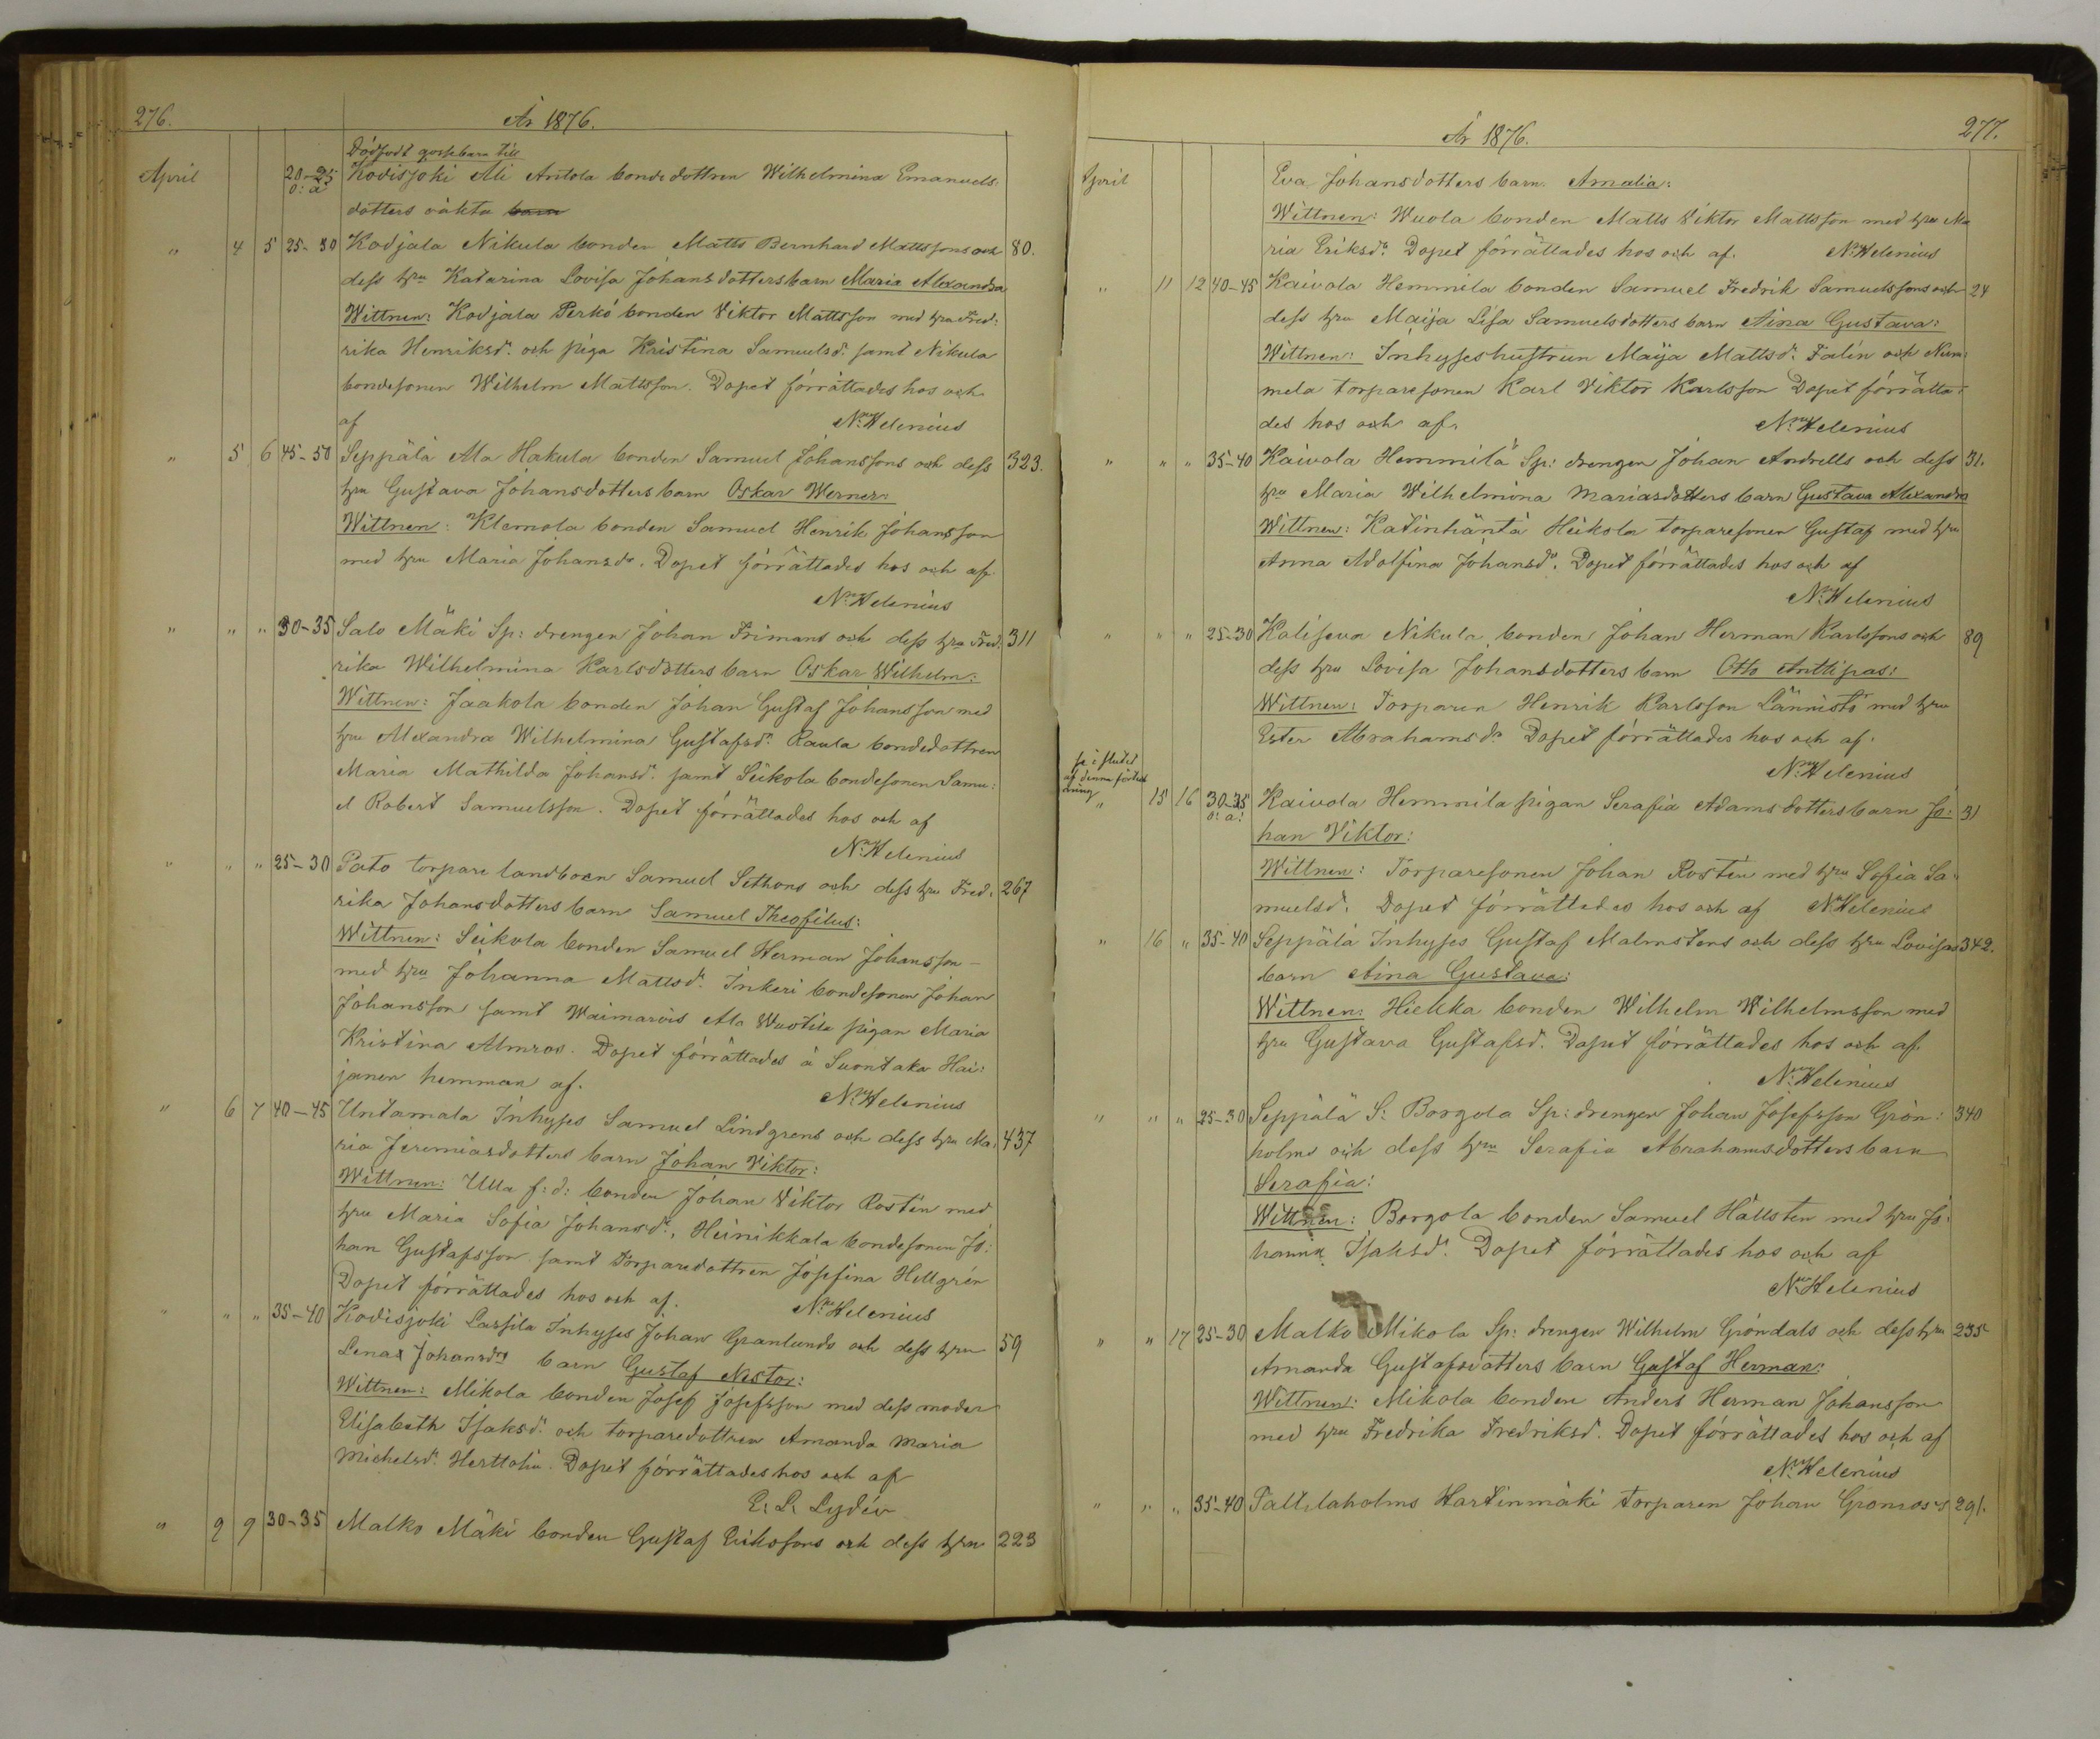 276.
År 1876.
Dödfödt gossebarn till
April 20-25 Kodisjoki Ali Antola bondedottren Wilhelmina Emanuels-
o: ä: dotters oäkta barn
" 4 5 25-30 Kodjala Nikula bonden Matts Bernhard Mattssons och 80.
dess hru Katarina Lovisa Johansdotters barn Maria Alexandra
Wittnen: Kodjala Perkö bonden Viktor Mattsson med hru Fred:
rika Henriksdr. och piga Kristina Samuelsdr. samt Nikula
bondesonen Wilhelm Mattsson. Dopet förrättades hos och
af Nr. Helenius
" 5 6 45-50 Seppälä Ala Hakula bonden Samuel Johanssons och dess 323.
hru Gustava Johansdotters barn Oskar Werner:
Wittnen: Klemola bonden Samuel Henrik Johansson
med hru Maria Johansdr. Dopet förrättades hos och af
Nr. Helenius
" " " 30-35 Salo Mäki Sp: drengen Johan Frimans och dess hru Fred: 311
rika Wilhelmina Karlsdotters barn Oskar Wilhelm:
Wittnen: Jaakola bonden Johan Gustaf Johansson med
hru Alexandra Wilhelmina Gustafsdr. Raula bondedottren
Maria Mathilda Johansdr. samt Seikola bondesonen Samu:
el Robert Samuelsson. Dopet förrättades hos och af
Nr. Helenius
" " " 25-30 Pato torpare landboen Samuel Sethons och dess hru Fred: 267
rika Johansdotters barn Samuel Theofilus:
Wittnen: Seikola bonden Samuel Herman Johansson
med hru Johanna Mattsdr. Inkeri bondesonen Johan
Johansson samt Waimarois Ala Wuotila pigan Maria
Kristina Almros. Dopet förrättades å Suontaka Hai:
janen hemman af. Nr. Helenius
" 6 7 40-45 Untamala Inhyses Samuel Lindgrens och dess hru Ma: 437
ria Jeremiasdotters barn Johan Viktor:
Wittnen: Ulla f: d: bonden Johan Viktor Rostén med
hru Maria Sofia Johansdr., Heinikkala bondesonen Jo:
han Gustafsson samt torparedottren Josefina Hellgrén
Dopet förrättades hos och af. Nr. Helenius
" " " 35-40 Kodisjoki Lassila Inhyses Johan Granlunds och dess hru 59
Lenas Johansdrs barn Gustaf Nestor:
Wittnen: Mikola bonden Josef Josefsson med dess moder
Elisabeth Isaksdr. och torparedottren Amanda Maria
Michelsdr. Herttolin. Dopet förrättades hos och af
E. L. Lydén
" 9 9 30-35 Malko Mäki bonden Gustaf Erikssons och dess hru 223
År 1876. 277.
April Eva Johansdotters barn Amalia:
Wittnen: Wuola bonden Matts Viktor Mattsson med hru Ma
ria Eriksdr. Dopet förrättades hos och af. Nr. Helenius
" 11 12 40-45 Kaivola Hemmilä bonden Samuel Fredrik Samuelssons och 24
dess hru Maija Lisa Samuelsdotters barn Aina Gustava:
Wittnen: Inhyseshustrun Maija Mattsdr. Falin och Num:
mela torparesonen Karl Viktor Karlsson Dopet förrätta:
des hos och af. Nr. Helenius
" " " 35-40 Kaivola Hemmilä Sp: drengen Johan Andrells och dess 31.
hru Maria Wilhelmina Mariasdotters barn Gustava Alexandra
Wittnen: Katinhäntä Heikola torparesonen Gustaf med hru
Anna Adolfina Johansdr. Dopet förrättades hos och af
Nr. Helenius
" " " 25-30 Kaliseva Nikula bonden Johan Herman Karlssons och 89
dess hru Lovisa Johansdotters barn Otto Anttipas:
Wittnen: Torparen Henrik Karlsson Lännistö med hru
Ester Abrahamsdr. Dopet förrättades hos och af.
Nr. Helenius
se i slutet
af denna förteck
kning
" 15 16 30-35 Kaivola Hemmilä pigan Serafia Adamsdotters barn Jo: 31
o: ä: han Viktor:
Wittnen: Torparesonen Johan Rostén med hru Sofia Sa:
muelsdr. Dopet förrättades hos och af Nr. Helenius
" 16 " 35-40 Seppälä Inhyses Gustaf Malmstens och dess hru Lovisas 342.
barn Aina Gustava:
Wittnen: Hiekka bonden Wilhelm Wilhelmsson med
hru Gustava Gustafsdr. Dopet förrättades hos och af.
Nr. Helenius
" " " 25-30 Seppälä S: Borgola Sp: drengen Johan Josefsson Grön: 340
holms och dess hru Serafia Abrahamsdotters barn
Serafia:
Wittnen: Borgola bonden Samuel Hällsten med hru Jo:
hanna Isaksdr. Dopet förrättades hos och af
Nr. Helenius
" " 17 25-30 Malko Mikola Sp: drengen Wilhelm Gröndals och dess hru 235
Amanda Gustafsdotters barn Gustaf Herman:
Wittnen: Mikola bonden Anders Herman Johansson
med hru Fredrika Fredriksdr. Dopet förrättades hos och af
Nr. Helenius
" " " 35-40 Tattilaholms Hartinmäki torparen Johan Gronroos's 291.